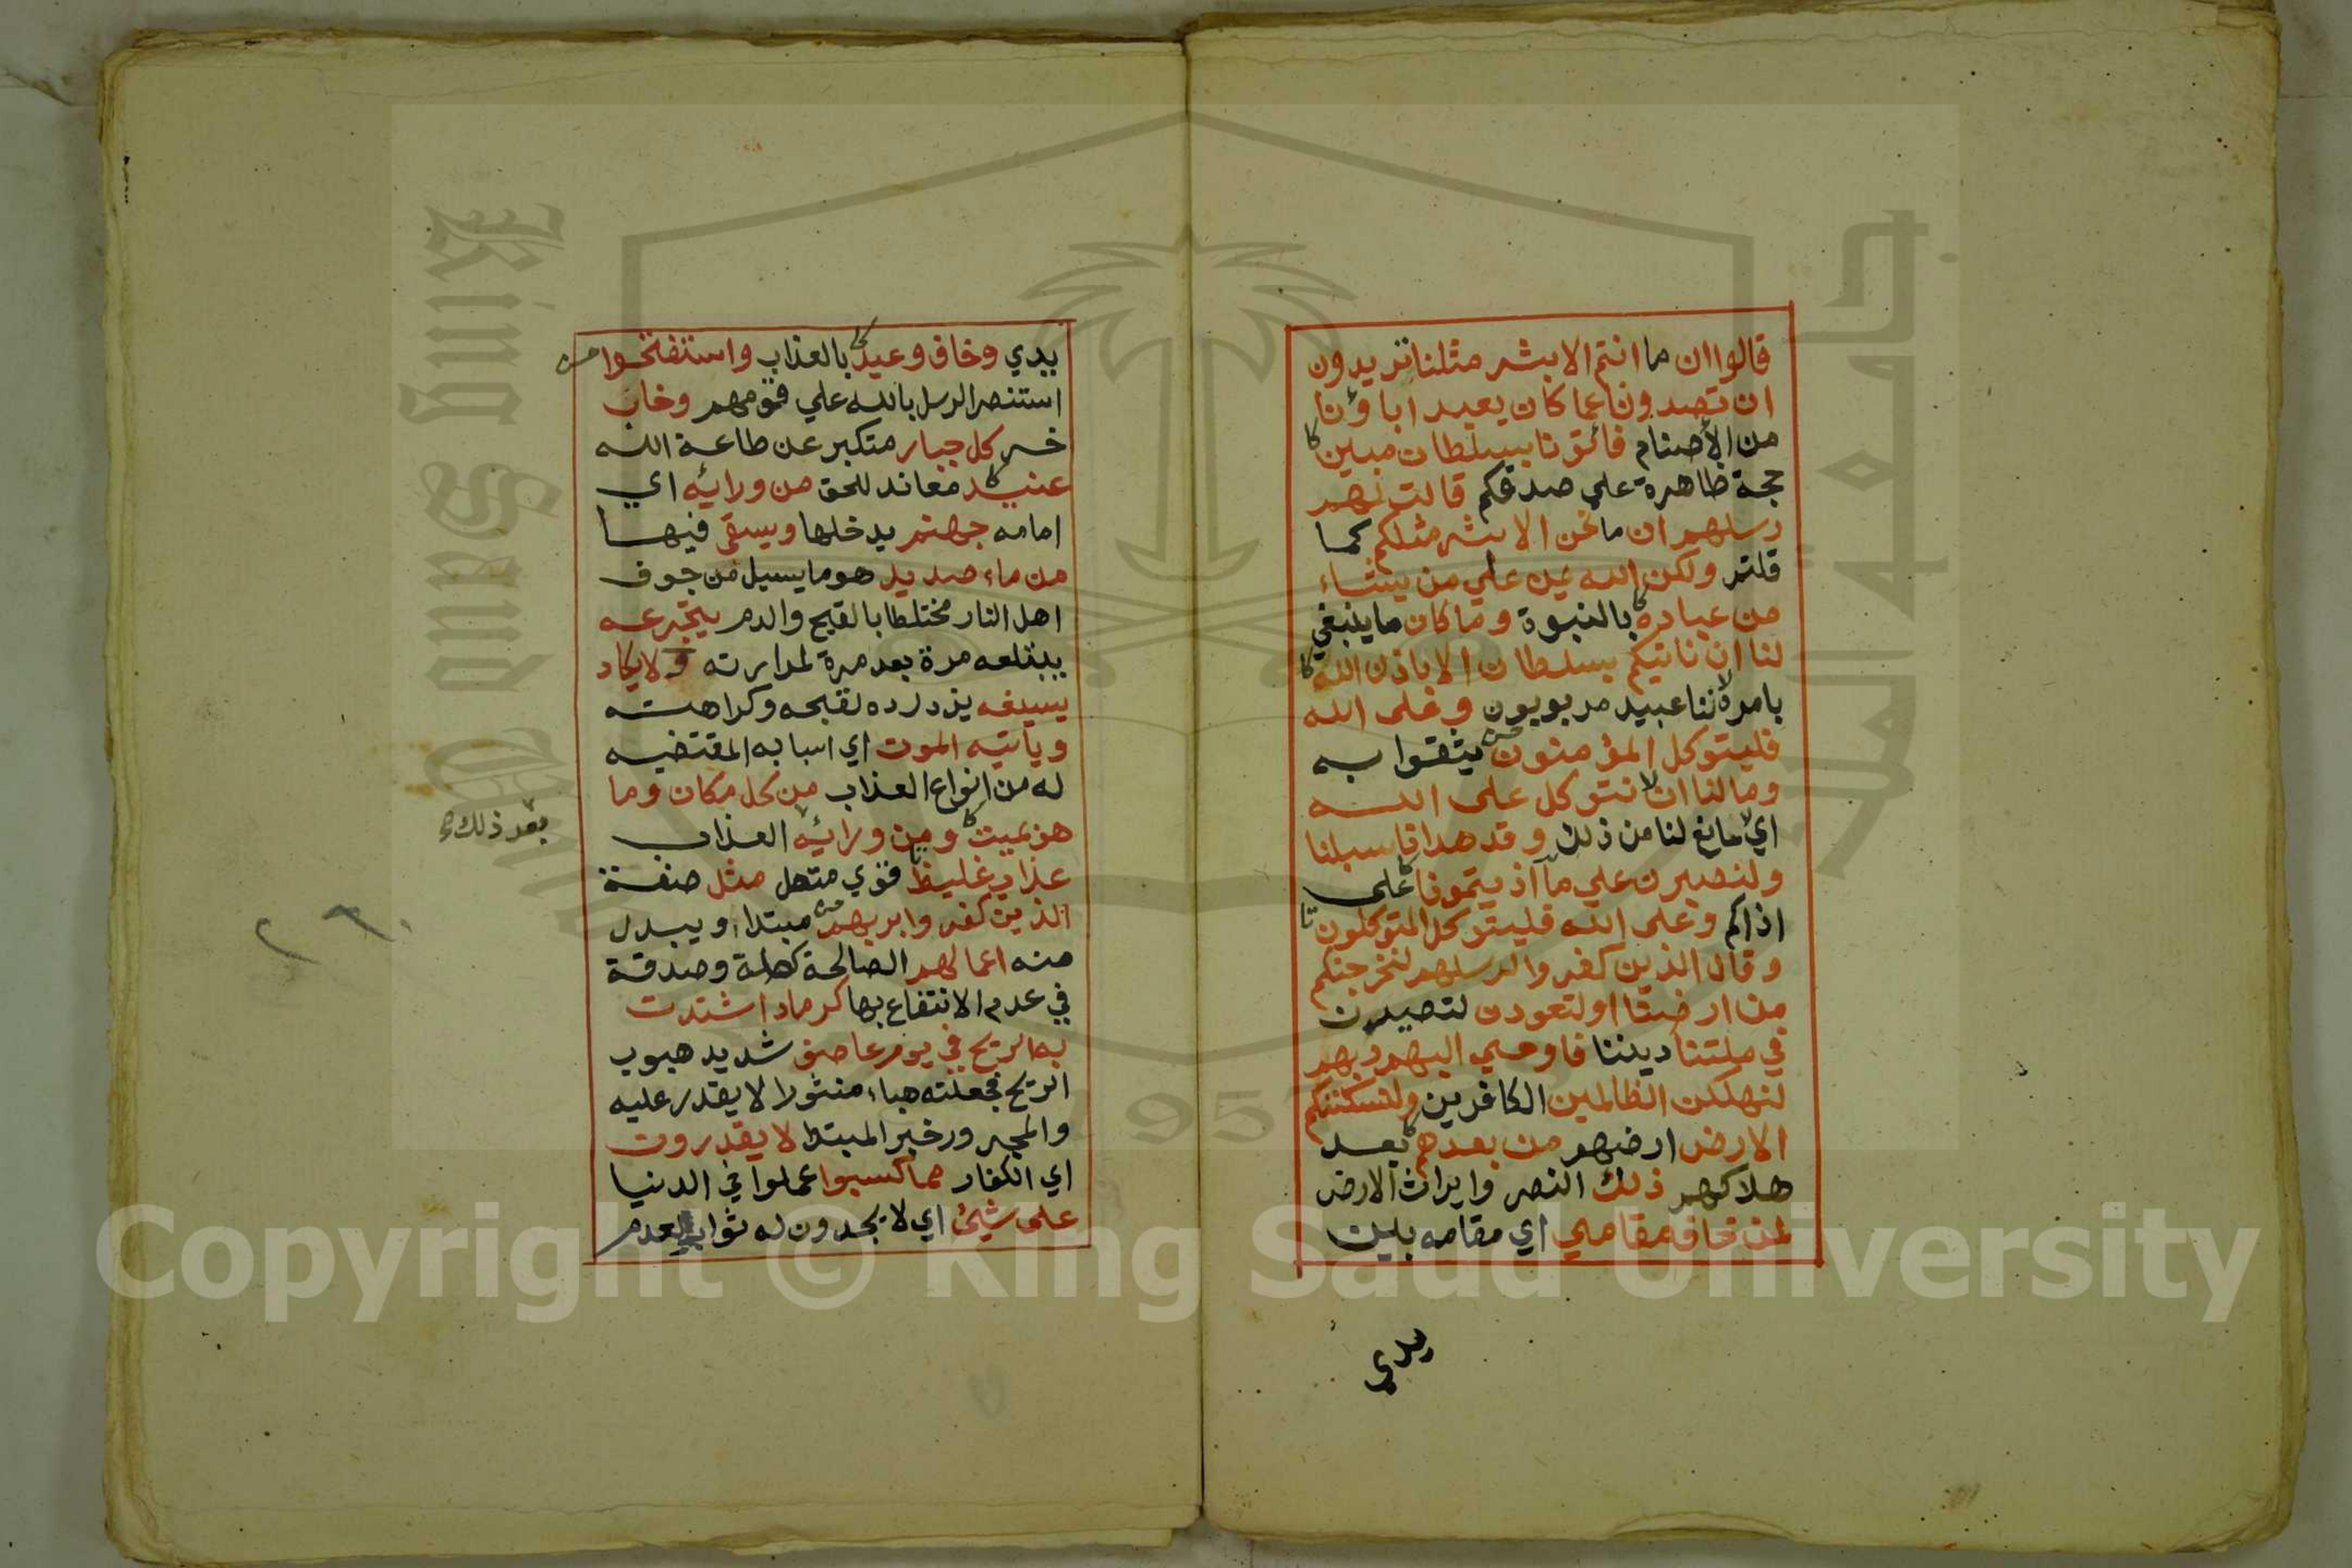 قالوا ان ما انتم الا بشر مثلنا تريدون
ان تصدونا عما كان يعبد اباؤنا
من الأصنام فائتونا بسلطان مبين
حجة ظاهرة علي صدقكم قالت لهم
رسلهم ان ما نحن الا بشر مثلكم كما
قلتم ولكن الله يمن علي من يشاء
من عباده بالنبوة وما كان ما ينبغي
لنا ان ناتيكم بسلطان الا باذن الله
بامره لاننا عبيد مربوبون وعلى الله
فليتوكل المؤمنون يثقوا به
وما لنا ان لا نتوكل على الله
اي لا مانع لنا من ذلك وقد هدانا سبلنا
ولنصبرن علي ما آذيتمونا على
اذاكم وعلى الله فليتوكل المتوكلون
وقال الذين كفروا لرسلهم لنخرجنكم
من ارضنا او لتعودن لتصيرن
في ملتنا ديننا فاوحي اليهم ربهم
لنهلكن الظالمين الكافرين ولنسكننكم
الارض ارضهم من بعدهم بعد
هلاكهم ذلك النصر وايراث الارض
لمن خاف مقامي اي مقامه بين
يدي
يدي وخاف وعيد بالعذاب واستفتحوا
استنصر الرسل بالله علي قومهم وخاب
خسر كل جبار متكبر عن طاعة الله
عنيد معاند للحق من ورائه اي
امامه جهنم يدخلها ويسقى فيها
من ماء صديد هو ما يسيل من جوف
اهل النار مختلطا بالقيح والدم يتجرعه
يبتلعه مرة بعد مرة لمرارته ولا يكاد
يسيغه يزدرده لقبحه وكراهته
وياتيه الموت اي اسبابه المقتضيه
له من انواع العذاب من كل مكان وما
هو بميت ومن ورائه العذاب
بعد ذلك
عذاب غليظ قوي متصل مثل صفة
الذين كفروا بربهم مبتدا، ويبدل
منه اعمالهم الصالحة كصلة وصدقة
في عدم الانتفاع بها كرماد اشتدت
به الريح في يوم عاصف شديد هبوب
الريح فجعلته هباء منثورا لا يقدر عليه
والمجرور خبر المبتدا لا يقدرون
اي الكفار مما كسبوا عملوا في الدنيا
على شيئ اي لا يجدون له ثوابا لعدم
٢٦٠
Copyright © King Saud University
King Saud University
جامعة الملك
1957